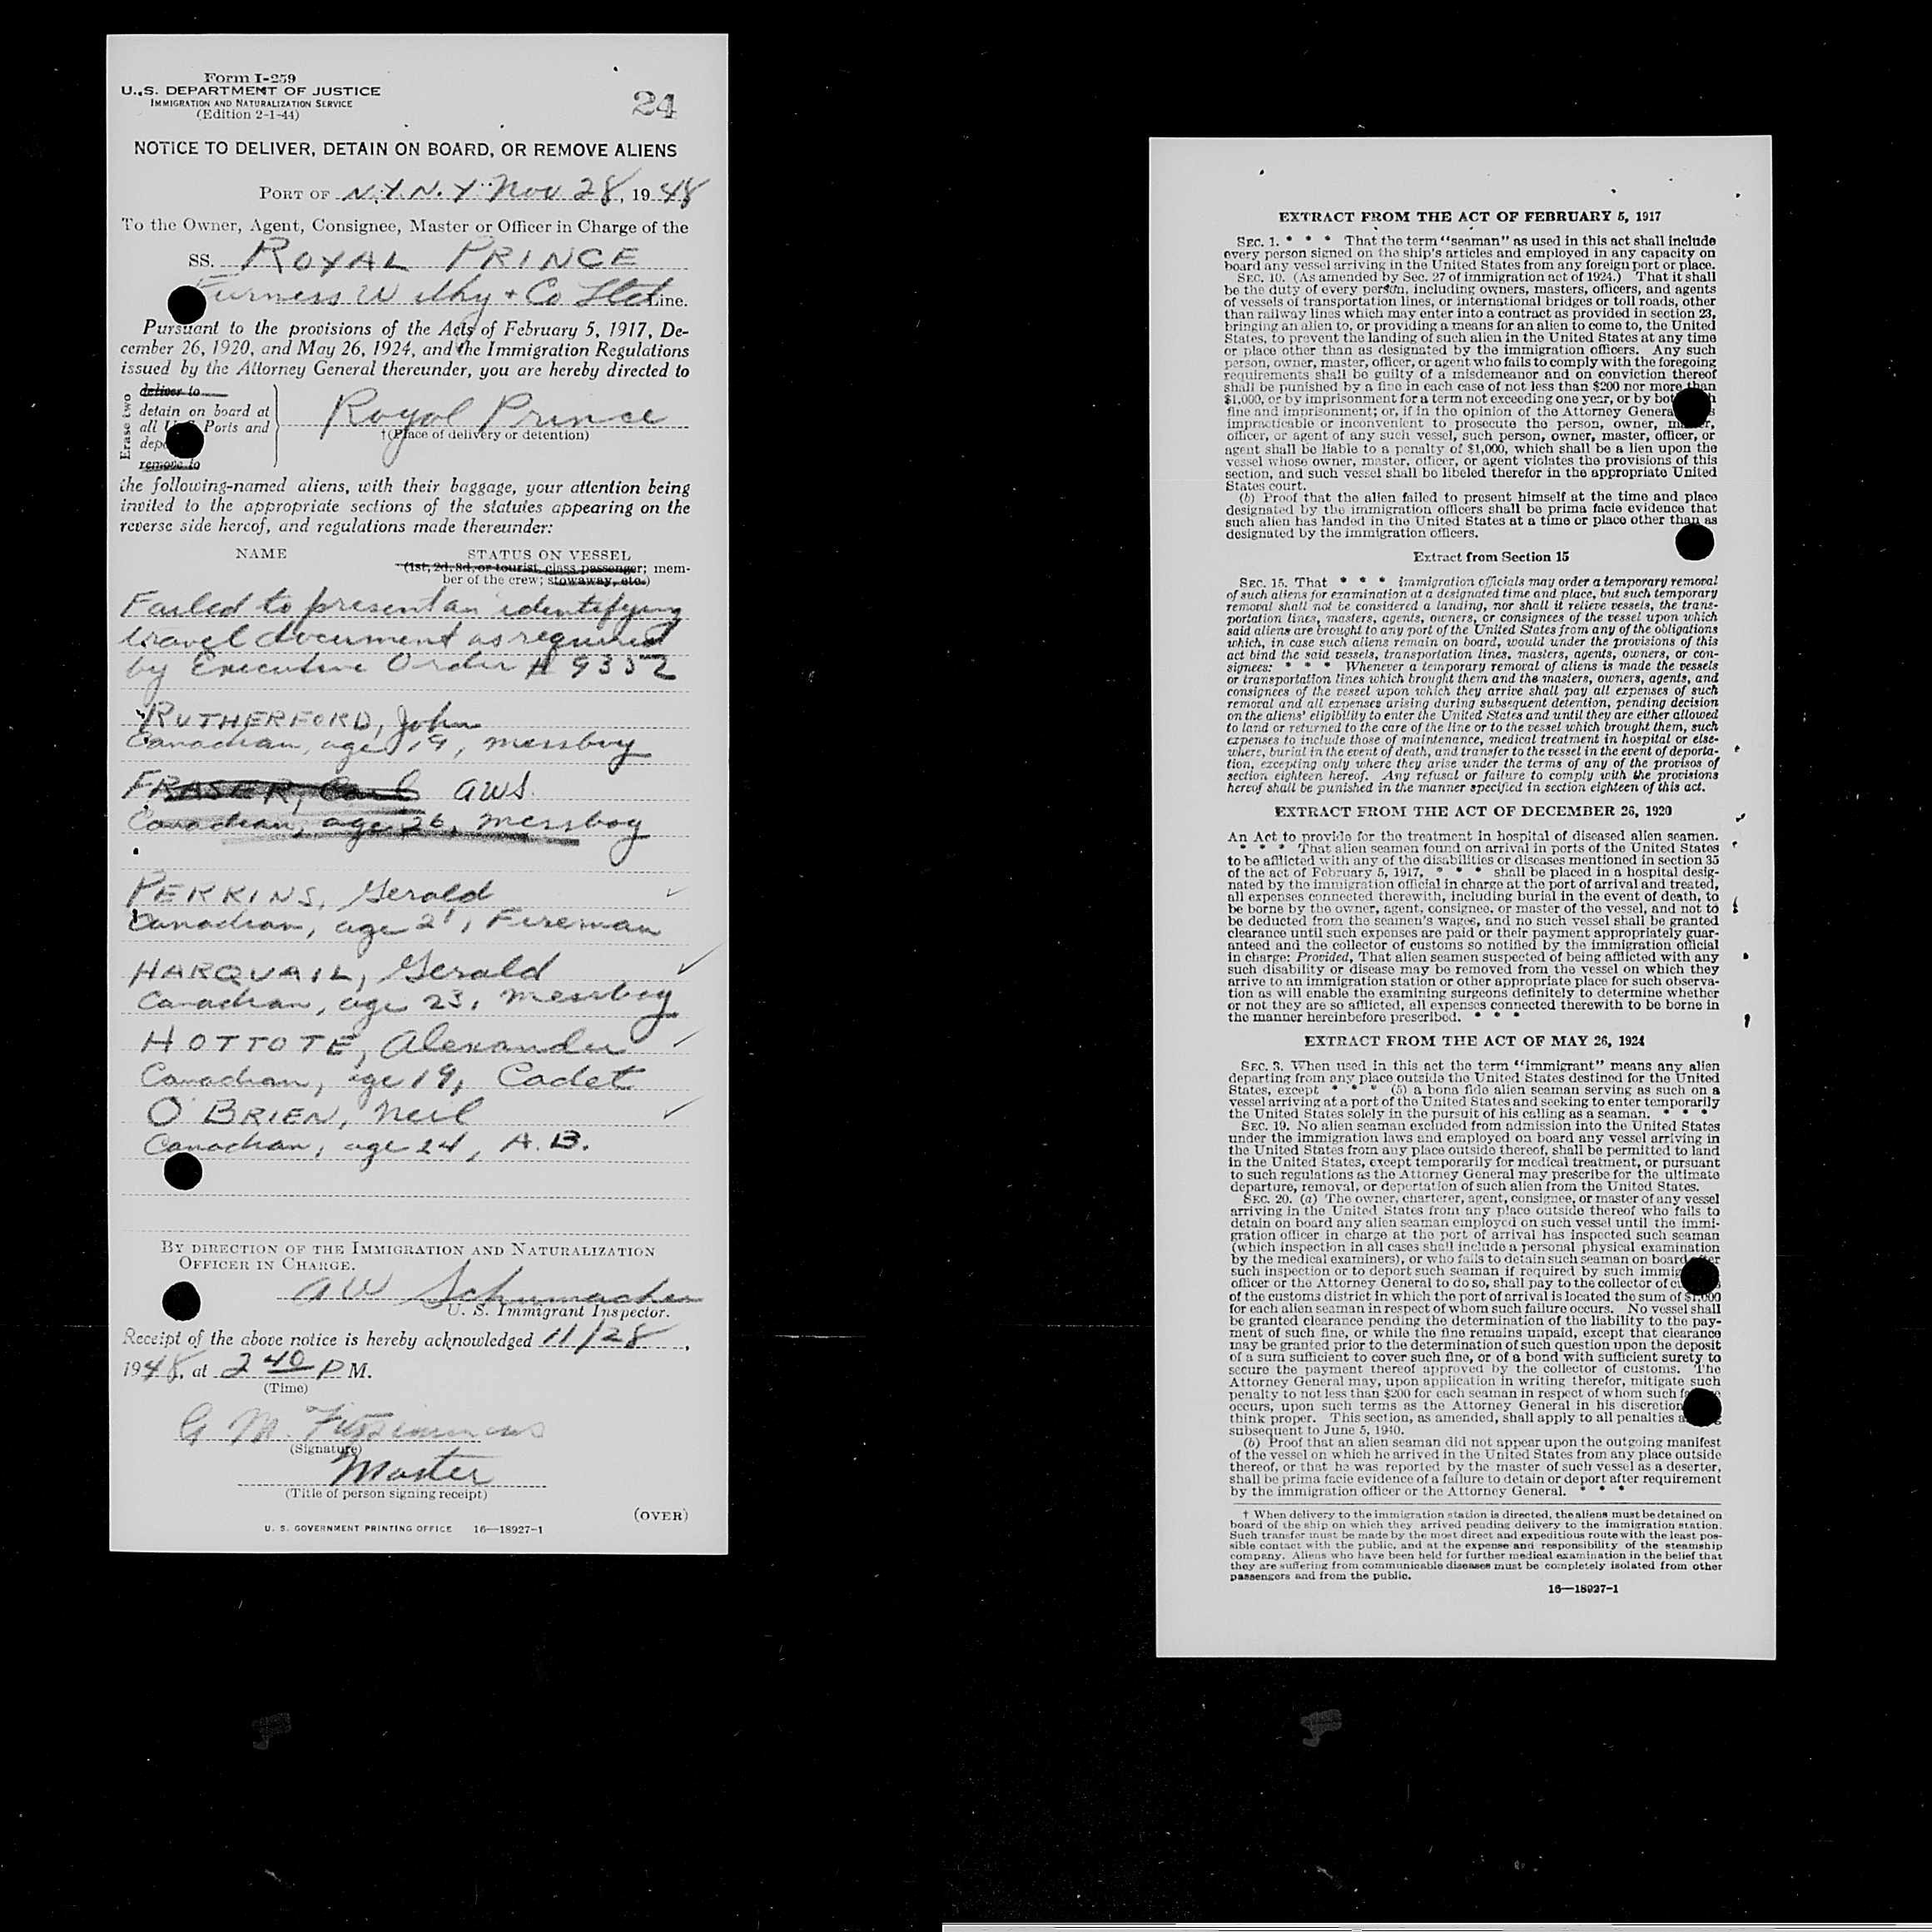 Form I-259
U. S. DEPARTMENT OF JUSTICE
IMMIGRATION AND NATURALIZATION SERVICE
(Edition 2-1-44)
24
NOTICE TO DELIVER, DETAIN ON BOARD, OR REMOVE ALIENS
PORT OF N.Y.N.Y. Nov 28, 1948
To the Owner, Agent, Consignee, Master or Officer in Charge of the
SS. ROYAL PRINCE
Furness Withy + Co Ltd Line.
Pursuant to the provisions of the Acts of February 5, 1917, De-
cember 26, 1920, and May 26, 1924, and the Immigration Regulations
issued by the Attorney General thereunder, you are hereby directed to
Erase two
deliver to
detain on board at
all U.S. Ports and
remove to
Royal Prince
†(Place of delivery or detention)
the following-named aliens, with their baggage, your attention being
invited to the appropriate sections of the statutes appearing on the
reverse side hereof, and regulations made thereunder:
NAME STATUS ON VESSEL
(1st, 2d, 3d, or tourist class passenger; mem-
ber of the crew; stowaway, etc.)
Failed to present an identifying
travel document as required
by Executive Order # 9352
RUTHERFORD, John
Canadian, age 19, messboy
FRASER, Carl AWS.
Canadian, age 26, messboy
PERKINS, Gerald
Canadian, age 21, Fireman
HARQUAIL, Gerald
Canadian, age 23, messboy
HOTTOTE, Alexander
Canadian, age 19, Cadet
O'BRIEN, Neil
Canadian, age 24, A.B.
BY DIRECTION OF THE IMMIGRATION AND NATURALIZATION
OFFICER IN CHARGE.
AW Schumacher
U. S. Immigrant Inspector.
Receipt of the above notice is hereby acknowledged 11/28,
1948, at 2 40 P M.
(Time)
G M Fitzsimmons
(Signature)
Master
(Title of person signing receipt)
(OVER)
U. S. GOVERNMENT PRINTING OFFICE 16—18927-1
EXTRACT FROM THE ACT OF FEBRUARY 5, 1917
SEC. 1. * * * That the term "seaman" as used in this act shall include
every person signed on the ship's articles and employed in any capacity on
board any vessel arriving in the United States from any foreign port or place.
SEC. 10. (As amended by Sec. 27 of immigration act of 1924.) That it shall
be the duty of every person, including owners, masters, officers, and agents
of vessels of transportation lines, or international bridges or toll roads, other
than railway lines which may enter into a contract as provided in section 23,
bringing an alien to, or providing a means for an alien to come to, the United
States, to prevent the landing of such alien in the United States at any time
or place other than as designated by the immigration officers. Any such
person, owner, master, officer, or agent who fails to comply with the foregoing
requirements shall be guilty of a misdemeanor and on conviction thereof
shall be punished by a fine in each case of not less than $200 nor more than
$1,000, or by imprisonment for a term not exceeding one year, or by both
fine and imprisonment; or, if in the opinion of the Attorney General
impracticable or inconvenient to prosecute the person, owner, master,
officer, or agent of any such vessel, such person, owner, master, officer, or
agent shall be liable to a penalty of $1,000, which shall be a lien upon the
vessel whose owner, master, officer, or agent violates the provisions of this
section, and such vessel shall be libeled therefor in the appropriate United
States court.
(b) Proof that the alien failed to present himself at the time and place
designated by the immigration officers shall be prima facie evidence that
such alien has landed in the United States at a time or place other than as
designated by the immigration officers.
Extract from Section 15
SEC. 15. That * * * immigration officials may order a temporary removal
of such aliens for examination at a designated time and place, but such temporary
removal shall not be considered a landing, nor shall it relieve vessels, the trans-
portation lines, masters, agents, owners, or consignees of the vessel upon which
said aliens are brought to any port of the United States from any of the obligations
which, in case such aliens remain on board, would under the provisions of this
act bind the said vessels, transportation lines, masters, agents, owners, or con-
signees: * * * Whenever a temporary removal of aliens is made the vessels
or transportation lines which brought them and the masters, owners, agents, and
consignees of the vessel upon which they arrive shall pay all expenses of such
removal and all expenses arising during subsequent detention, pending decision
on the aliens' eligibility to enter the United States and until they are either allowed
to land or returned to the care of the line or to the vessel which brought them, such
expenses to include those of maintenance, medical treatment in hospital or else-
where, burial in the event of death, and transfer to the vessel in the event of deporta-
tion, excepting only where they arise under the terms of any of the provisos of
section eighteen hereof. Any refusal or failure to comply with the provisions
hereof shall be punished in the manner specified in section eighteen of this act.
EXTRACT FROM THE ACT OF DECEMBER 26, 1920
An Act to provide for the treatment in hospital of diseased alien seamen.
* * * That alien seamen found on arrival in ports of the United States
to be afflicted with any of the disabilities or diseases mentioned in section 35
of the act of February 5, 1917, * * * shall be placed in a hospital desig-
nated by the immigration official in charge at the port of arrival and treated,
all expenses connected therewith, including burial in the event of death, to
be borne by the owner, agent, consignee, or master of the vessel, and not to
be deducted from the seamen's wages, and no such vessel shall be granted
clearance until such expenses are paid or their payment appropriately guar-
anteed and the collector of customs so notified by the immigration official
in charge: Provided, That alien seamen suspected of being afflicted with any
such disability or disease may be removed from the vessel on which they
arrive to an immigration station or other appropriate place for such observa-
tion as will enable the examining surgeons definitely to determine whether
or not they are so afflicted, all expenses connected therewith to be borne in
the manner hereinbefore prescribed. * * *
EXTRACT FROM THE ACT OF MAY 26, 1924
SEC. 3. When used in this act the term "immigrant" means any alien
departing from any place outside the United States destined for the United
States, except * * * (5) a bona fide alien seaman serving as such on a
vessel arriving at a port of the United States and seeking to enter temporarily
the United States solely in the pursuit of his calling as a seaman. * * *
SEC. 19. No alien seaman excluded from admission into the United States
under the immigration laws and employed on board any vessel arriving in
the United States from any place outside thereof, shall be permitted to land
in the United States, except temporarily for medical treatment, or pursuant
to such regulations as the Attorney General may prescribe for the ultimate
departure, removal, or deportation of such alien from the United States.
SEC. 20. (a) The owner, charterer, agent, consignee, or master of any vessel
arriving in the United States from any place outside thereof who fails to
detain on board any alien seaman employed on such vessel until the immi-
gration officer in charge at the port of arrival has inspected such seaman
(which inspection in all cases shall include a personal physical examination
by the medical examiners), or who fails to detain such seaman on board after
such inspection or to deport such seaman if required by such immig
officer or the Attorney General to do so, shall pay to the collector of
of the customs district in which the port of arrival is located the sum of $1,000
for each alien seaman in respect of whom such failure occurs. No vessel shall
be granted clearance pending the determination of the liability to the pay-
ment of such fine, or while the fine remains unpaid, except that clearance
may be granted prior to the determination of such question upon the deposit
of a sum sufficient to cover such fine, or of a bond with sufficient surety to
secure the payment thereof approved by the collector of customs. The
Attorney General may, upon application in writing therefor, mitigate such
penalty to not less than $200 for each seaman in respect of whom such
occurs, upon such terms as the Attorney General in his discretion
think proper. This section, as amended, shall apply to all penalties
subsequent to June 5, 1940.
(b) Proof that an alien seaman did not appear upon the outgoing manifest
of the vessel on which he arrived in the United States from any place outside
thereof, or that he was reported by the master of such vessel as a deserter,
shall be prima facie evidence of a failure to detain or deport after requirement
by the immigration officer or the Attorney General. * * *
† When delivery to the immigration station is directed, the aliens must be detained on
board of the ship on which they arrived pending delivery to the immigration station.
Such transfer must be made by the most direct and expeditious route with the least pos-
sible contact with the public, and at the expense and responsibility of the steamship
company. Aliens who have been held for further medical examination in the belief that
they are suffering from communicable diseases must be completely isolated from other
passengers and from the public.
16—18927-1